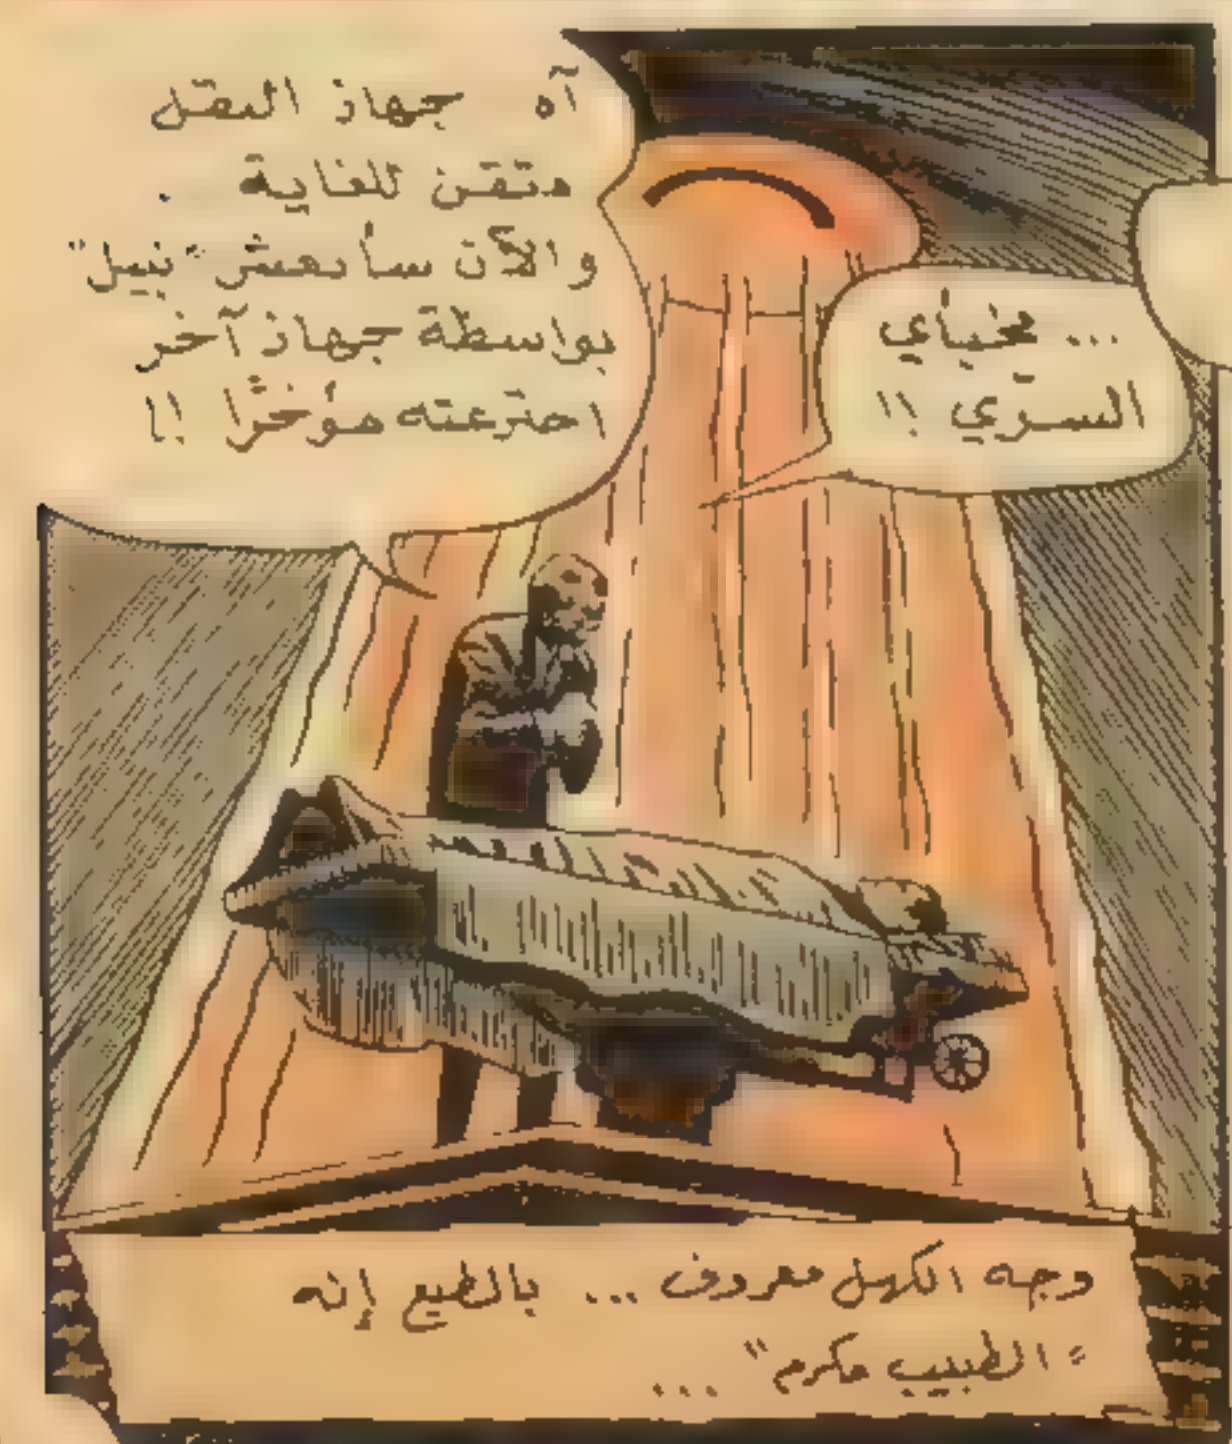 ... مخبأي
السري !!
آه جهاز النقل
متقن للغاية .
والآن سأنعش "نبيل"
بواسطة جهاز آخر
اخترعته مؤخرًا !!
وجه الكهل معروف ... بالطبع إنه
"الطبيب مكرم" ...